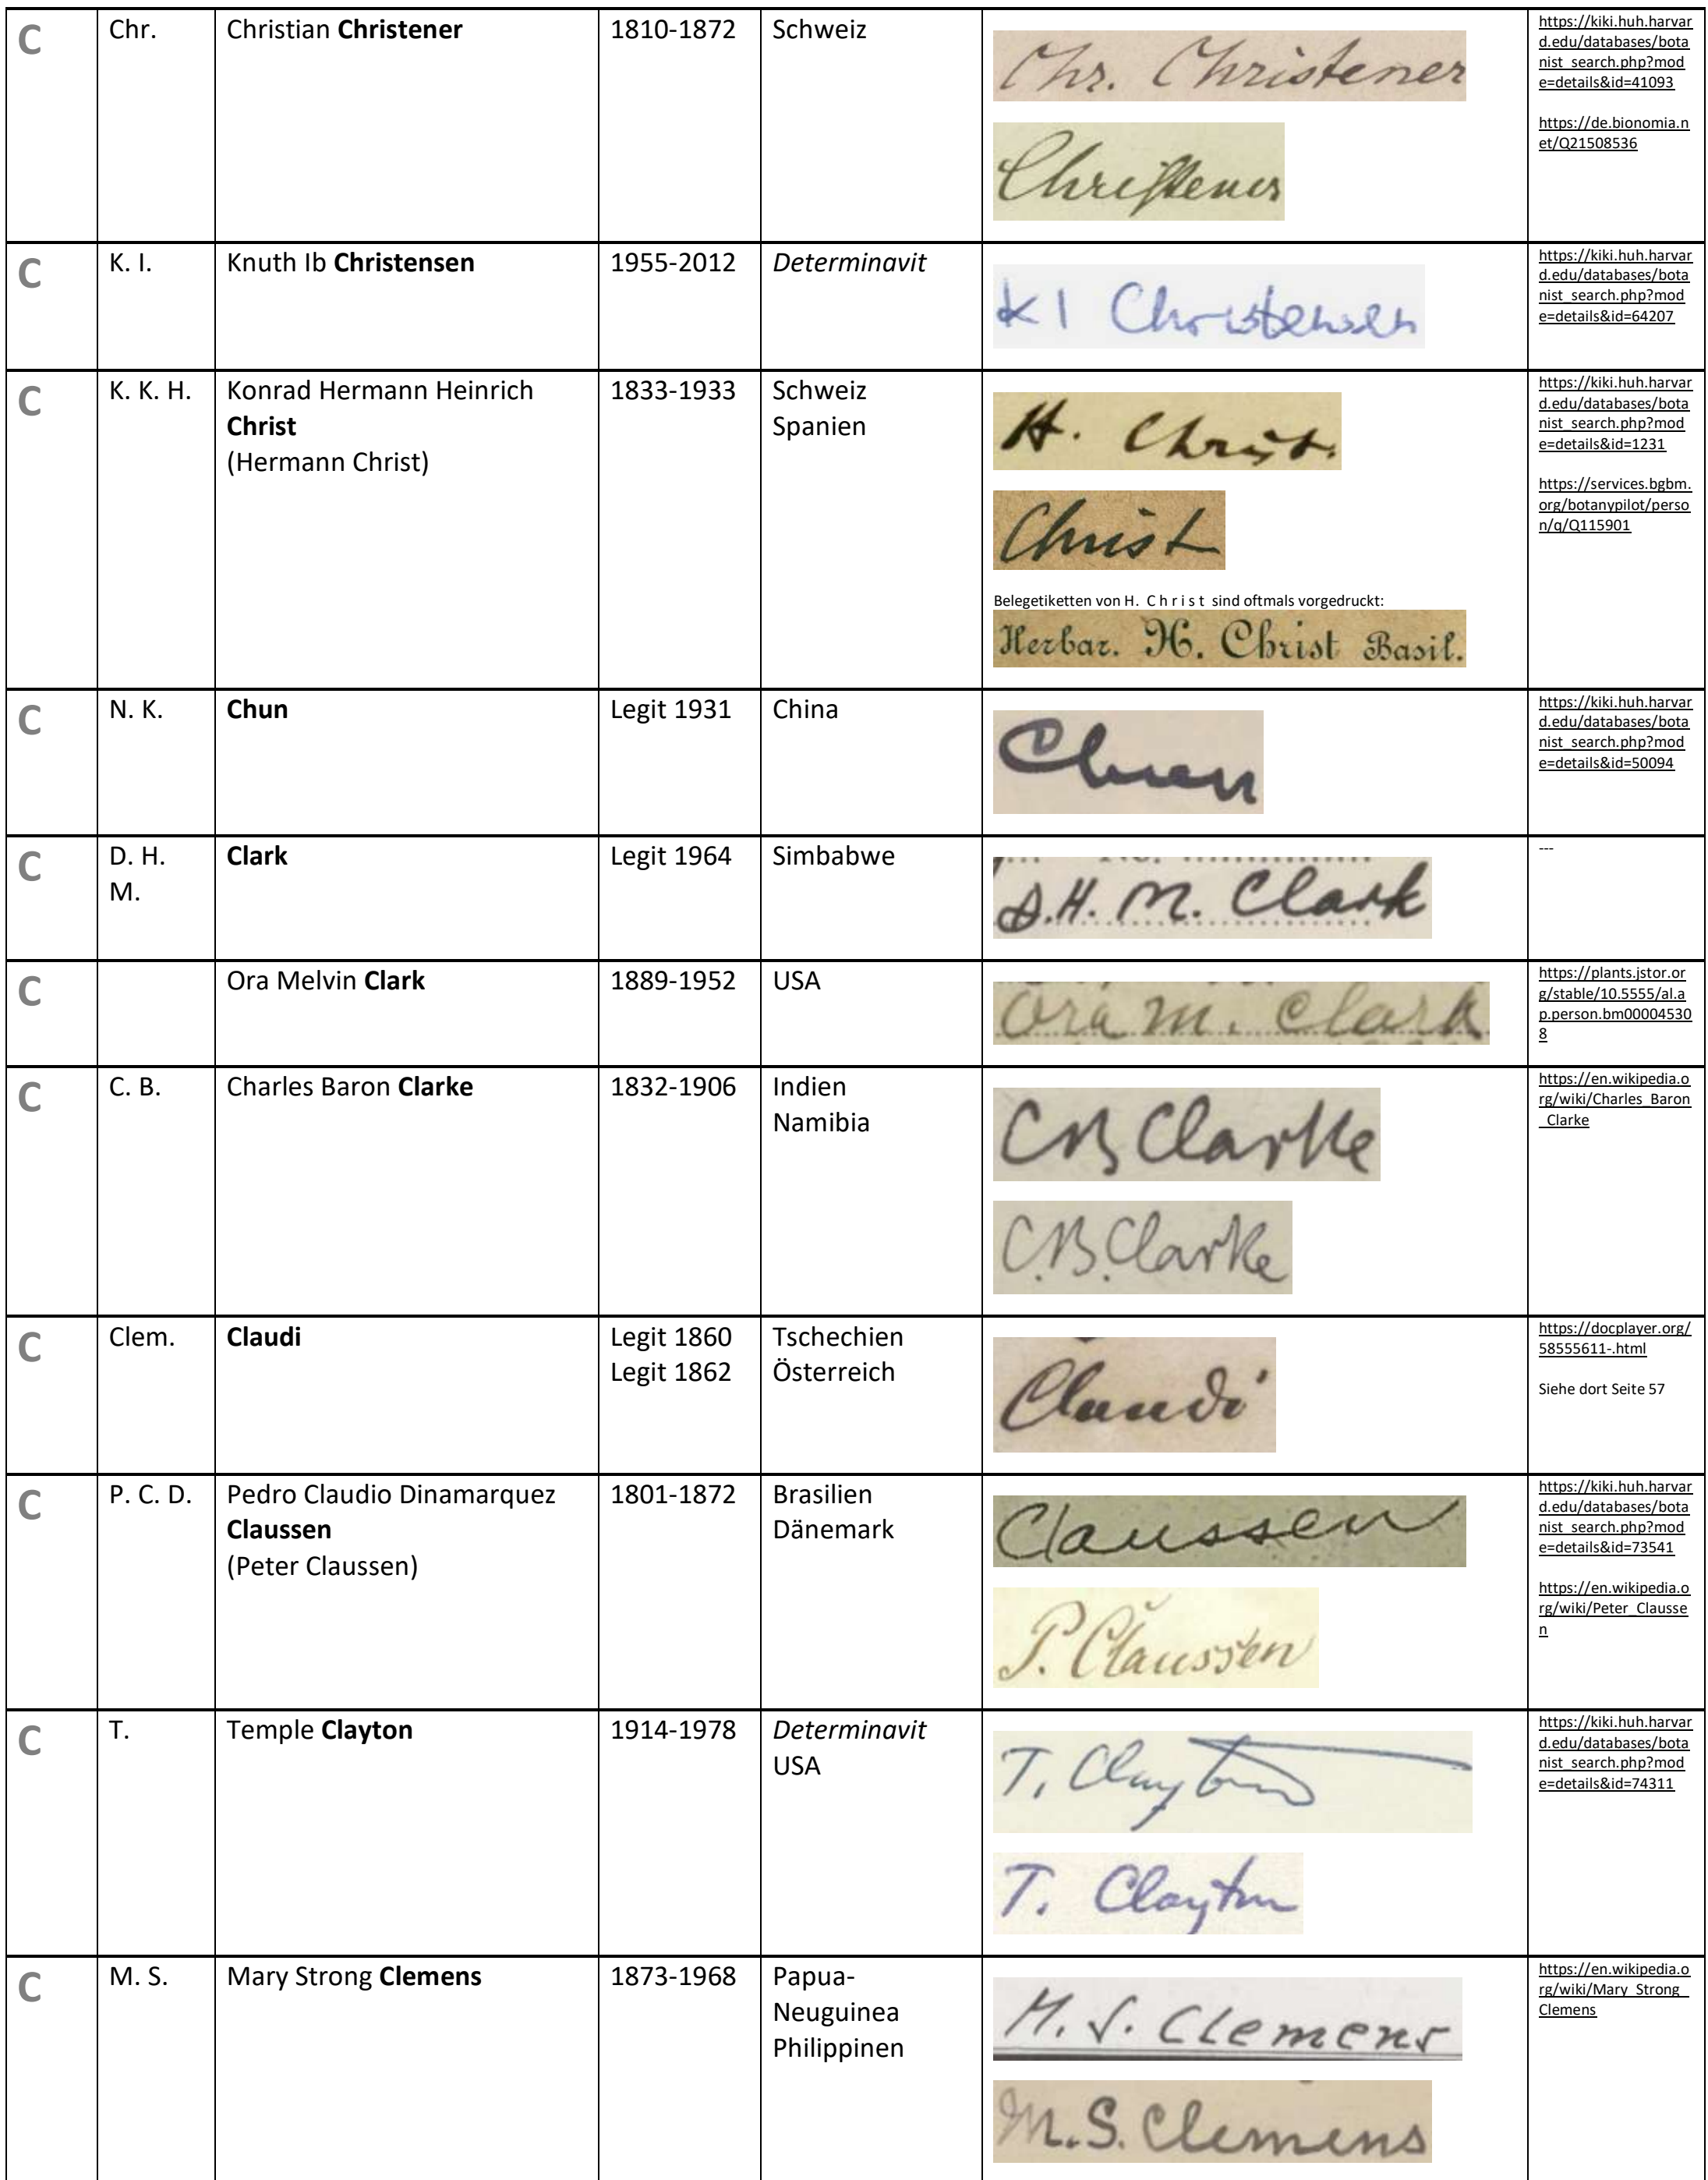 C Chr. Christian Christener 1810-1872 Schweiz
Chr. Christener
Christener
https://kiki.huh.harvar
d.edu/databases/bota
nist_search.php?mod
e=details&id=41093
https://de.bionomia.n
et/Q21508536
C K. I. Knuth Ib Christensen 1955-2012 Determinavit
K I Christensen
https://kiki.huh.harvar
d.edu/databases/bota
nist_search.php?mod
e=details&id=64207
C K. K. H. Konrad Hermann Heinrich
Christ
(Hermann Christ)
1833-1933 Schweiz
Spanien
H. Christ.
Christ
Belegetiketten von H. C h r i s t sind oftmals vorgedruckt:
Herbar. H. Christ Basil.
https://kiki.huh.harvar
d.edu/databases/bota
nist_search.php?mod
e=details&id=1231
https://services.bgbm.
org/botanypilot/perso
n/q/Q115901
C N. K. Chun Legit 1931 China
Chun
https://kiki.huh.harvar
d.edu/databases/bota
nist_search.php?mod
e=details&id=50094
C D. H.
M.
Clark Legit 1964 Simbabwe
D.H. M. Clark
---
C Ora Melvin Clark 1889-1952 USA
Ora M. Clark
https://plants.jstor.or
g/stable/10.5555/al.a
p.person.bm00004530
8
C C. B. Charles Baron Clarke 1832-1906 Indien
Namibia
CB Clarke
C.B. Clarke
https://en.wikipedia.o
rg/wiki/Charles_Baron
_Clarke
C Clem. Claudi Legit 1860
Legit 1862
Tschechien
Österreich
Claudi
https://docplayer.org/
58555611-.html
Siehe dort Seite 57
C P. C. D. Pedro Claudio Dinamarquez
Claussen
(Peter Claussen)
1801-1872 Brasilien
Dänemark
Claussen
P. Claussen
https://kiki.huh.harvar
d.edu/databases/bota
nist_search.php?mod
e=details&id=73541
https://en.wikipedia.o
rg/wiki/Peter_Clausse
n
C T. Temple Clayton 1914-1978 Determinavit
USA
T. Clayton
T. Clayton
https://kiki.huh.harvar
d.edu/databases/bota
nist_search.php?mod
e=details&id=74311
C M. S. Mary Strong Clemens 1873-1968 Papua-
Neuguinea
Philippinen
M. S. Clemens
M.S. Clemens
https://en.wikipedia.o
rg/wiki/Mary_Strong_
Clemens